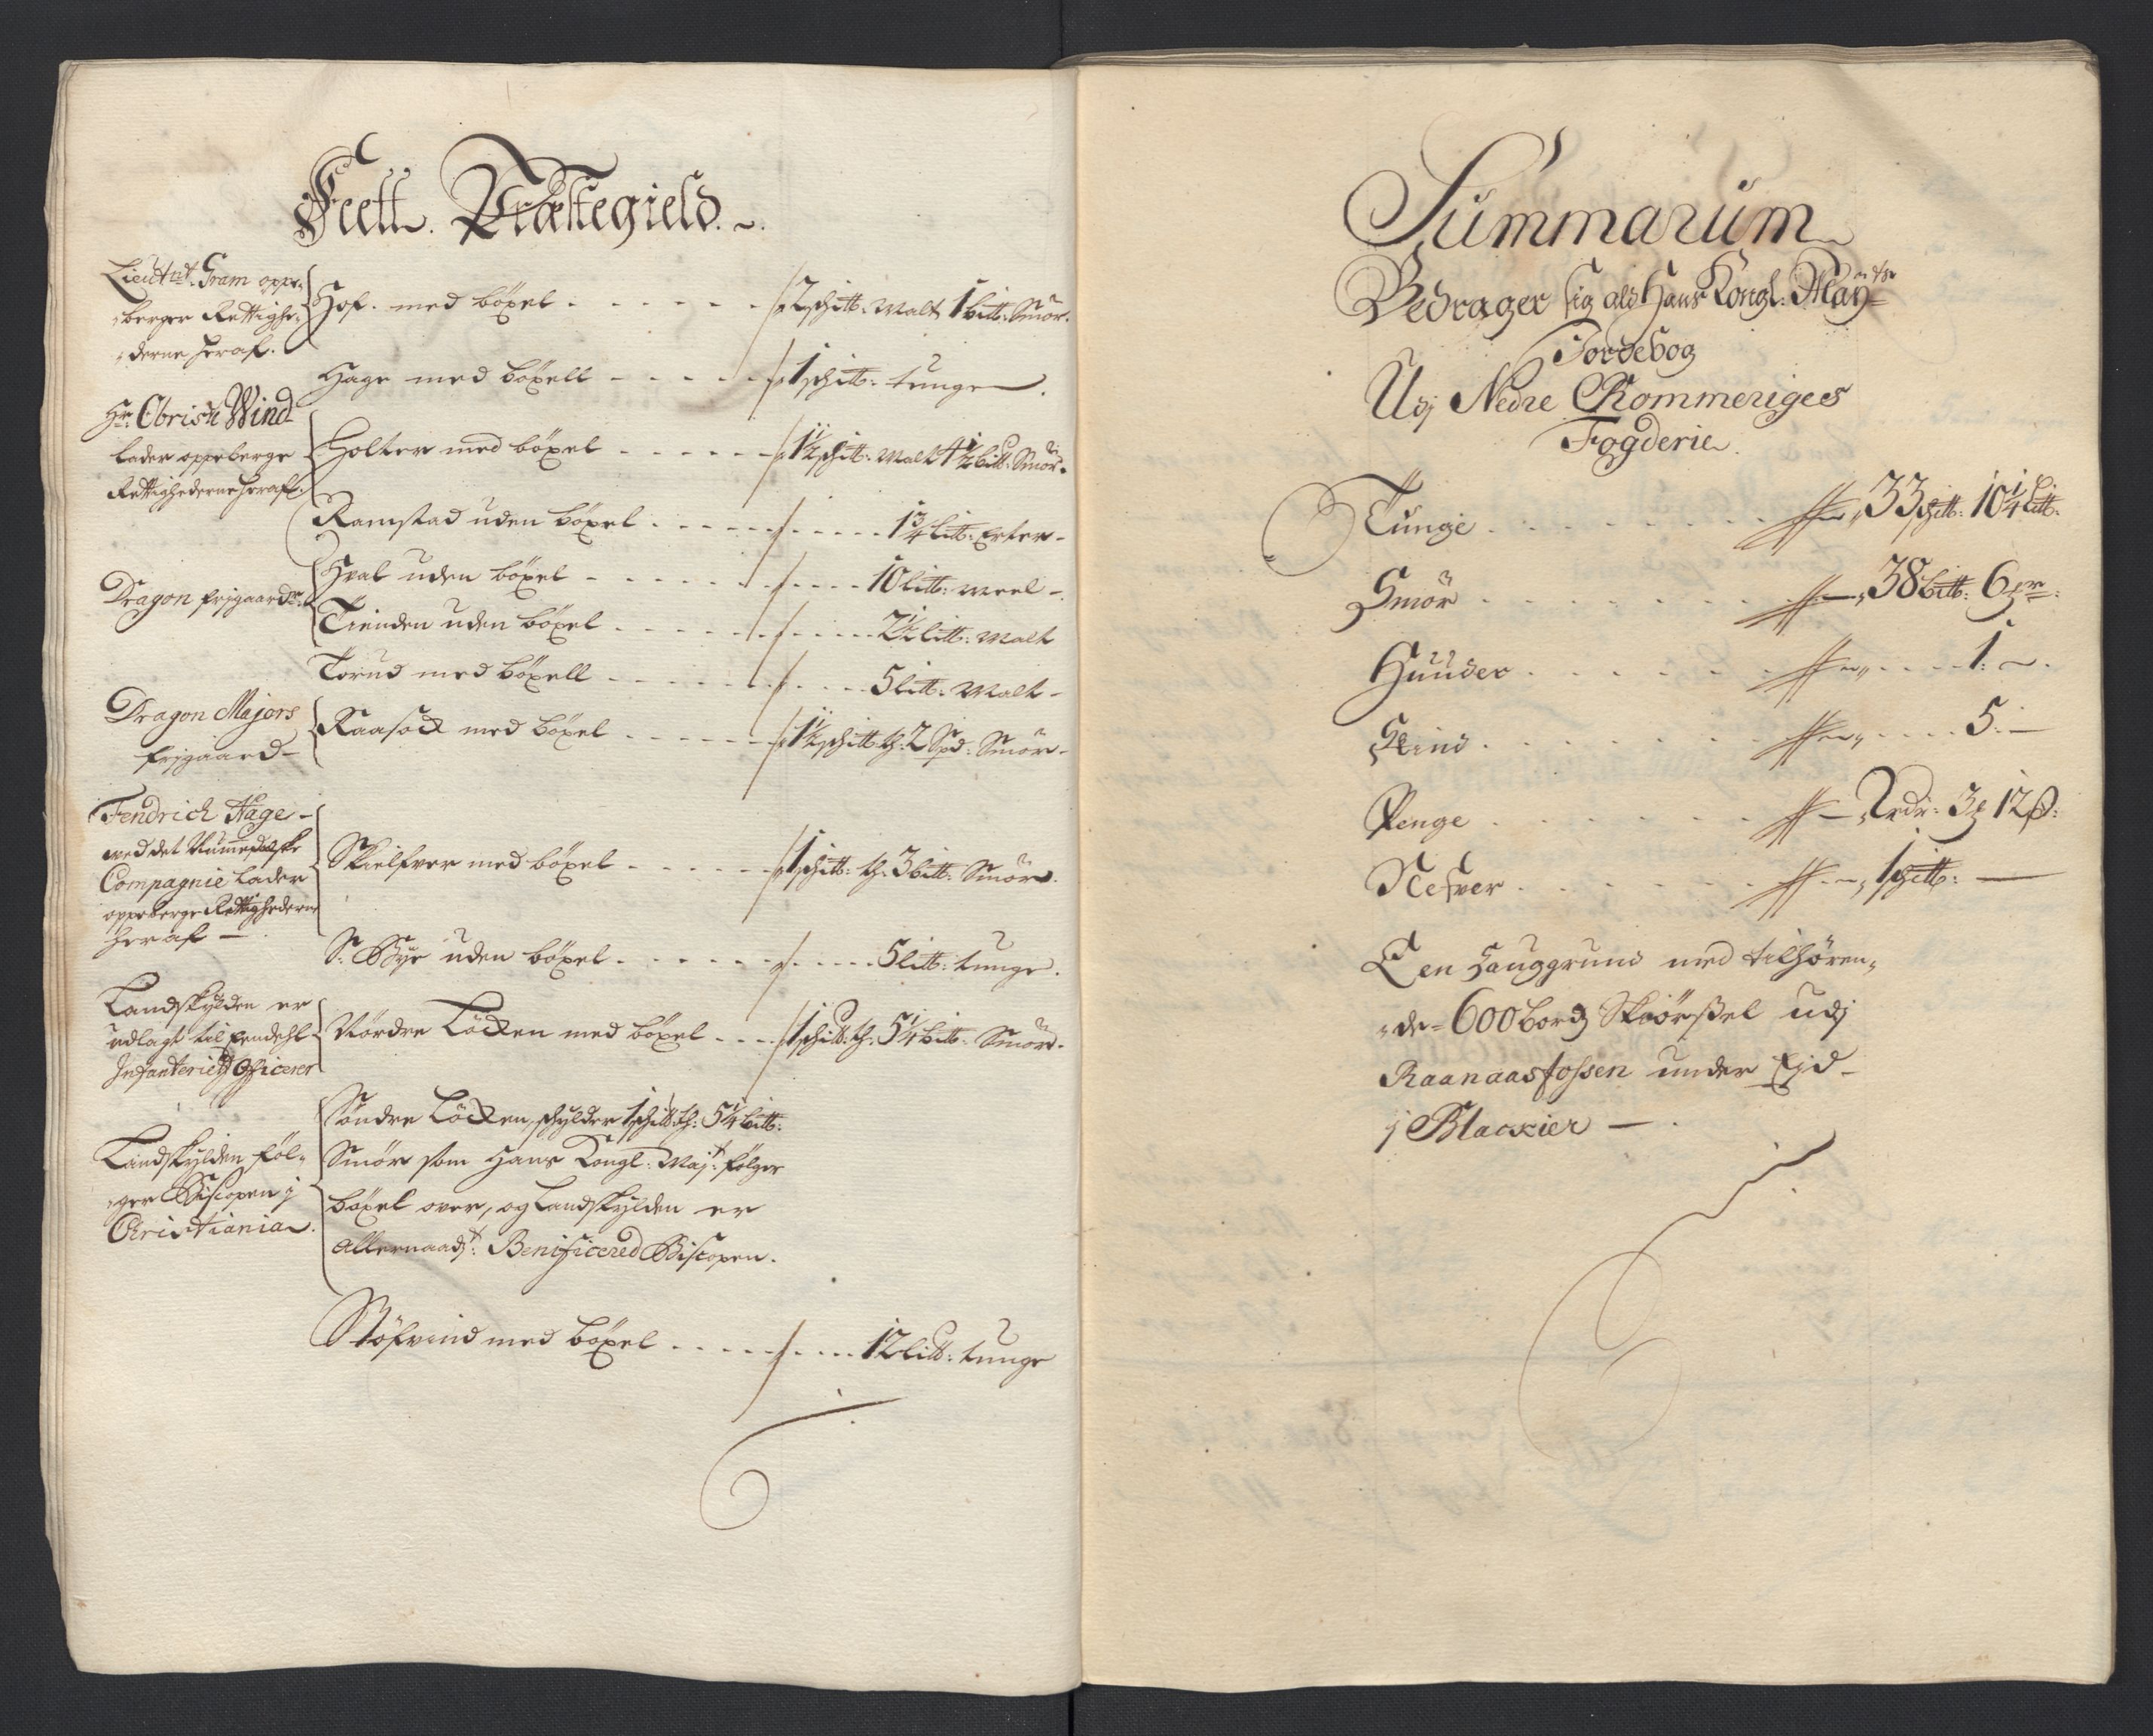 Feett. Præstegield.
Lieutnt. Gram oppe-
berger Rettighe-
derne heraf.
Hof. med böxel 2 schitt: Malt 1 bitt: Smör.
Hage med böxell 1 schitt: tunge
Hr. Obriste Wind
lader oppeberge
Rettighederne heraf.
Holter med böxel 1½ schitt: Malt 4½ bitt: Smör.
Ramstad uden böxel 1¾ litt: Erter
Dragon frjgaarder
Hval uden böxel 10 litt: meel
Tienden uden böxel 2½ litt: Malt
Torud med böxell 5 litt: Malt
Dragon Majors
frjgaard
Raasoch med böxel 1½ schitt th: 2 Spd: Smör
Fendrich Hage
ved det Nummedalske
Compagnie lader
oppeberge Rettighederne
heraf
Skielfver med böxel 1 schitt: th: 3 bitt: Smör.
S: Bye uden böxel 5 litt: tunge.
Landskylden er
udlagt til Eendehl
Infanterie Officerer
Nördre Löcken med böxel 1 schitt: th: 5¼ bitt: Smör.
Landskylden föl-
ger Biscopen j
Christiania.
Söndre Löcken, skylder 1 schitt th: 5¼ bitt:
Smör som Hans Kongl: Majt: fölger
böxel over, og Landskylden er
allernaadst: Benificered Biscopen.
Stöfvind med böxel 12 litt: tunge
Summarum
Bedrager sig ald Hans Kongl: Mayts
Jordebog
Udj Nedre Rommeriges
Fogderie.
Tunge 33 schitt: 10¼ litt:
Smör 38 bitt: 6 mr:
Huuder 1:
Skind 5:
Penge 2 rdr: 3 12 ß:
Nefver 1 schitt:
Een Sauggrund med tilhören-
de 600 bord Skiörßel udj
Raanaasfossen under Ejd
j Blackier